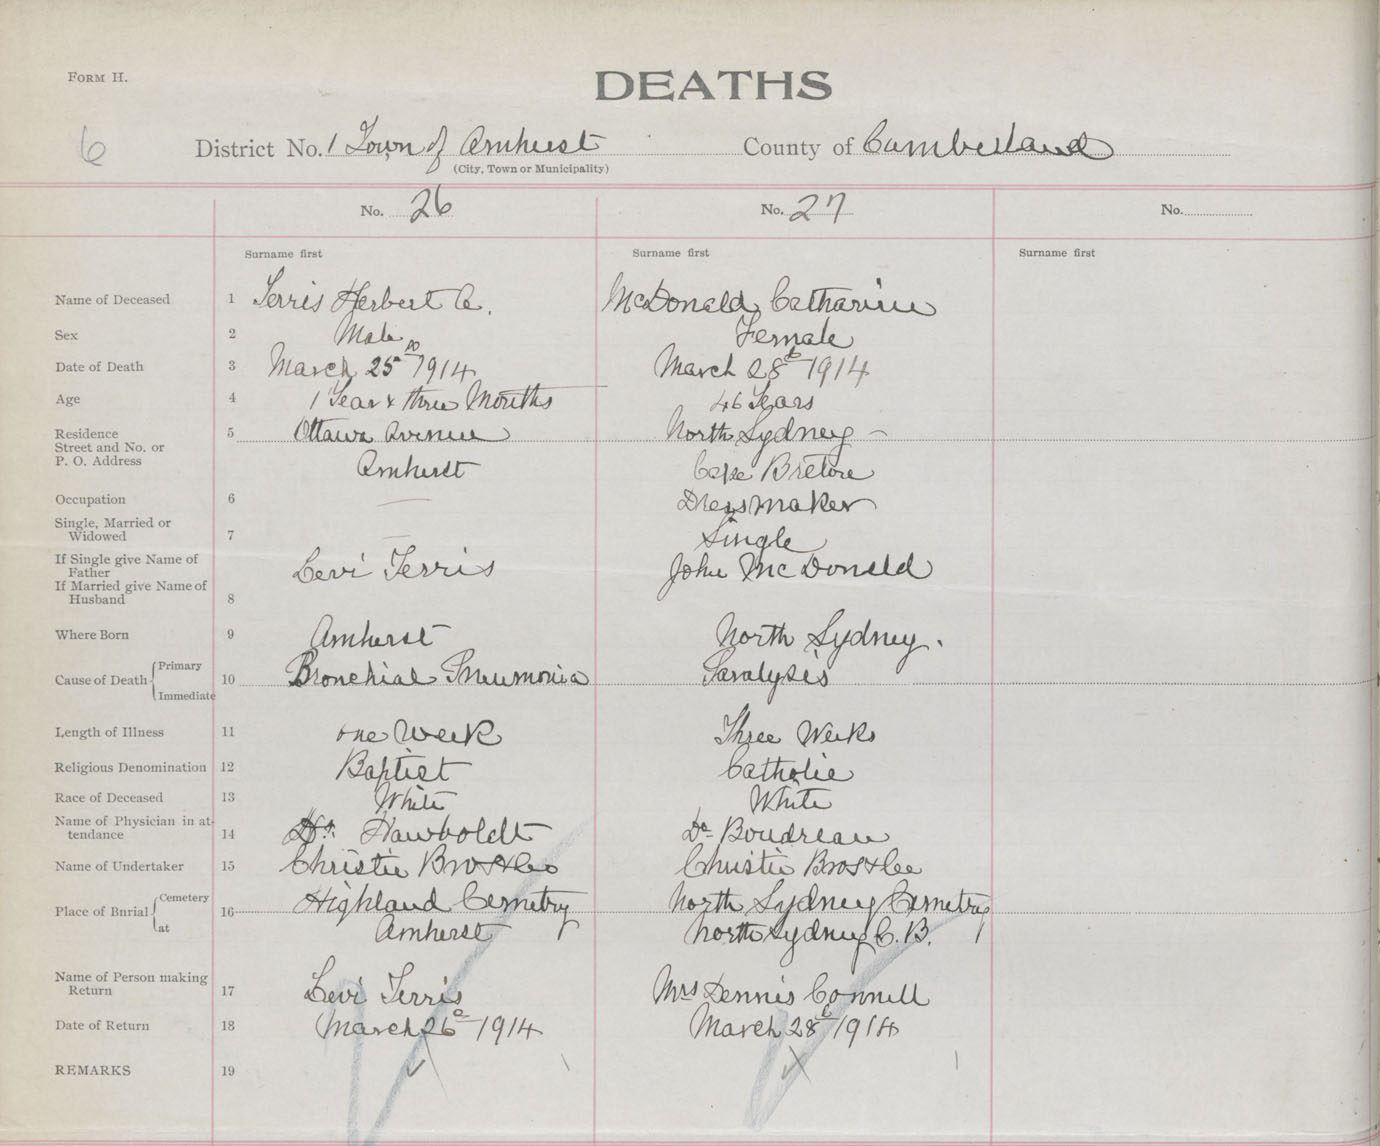 Form H.
DEATHS
6
District No. 1 Town of Amherst County of Cumberland
(City, Town or Municipality)
No. 26 No. 27 No.
Surname first Surname first Surname first
Name of Deceased 1 Terris Herbert A. McDonald Catharine
Sex 2 Male Female
Date of Death 3 March 25th 1914 March 28th 1914
Age 4 1 Year & three Months 46 Years
Residence 5 Ottawa Avenue North Sydney -
Street and No. or
P. O. Address Amherst Cape Breton
Occupation 6 — Dressmaker
Single, Married or
Widowed 7 — Single
If Single give Name of
Father Levi Terris John McDonald
If Married give Name of
Husband 8
Where Born 9 Amherst North Sydney.
Cause of Death { Primary
10 Bronchial Pneumonia Paralysis
Immediate
Length of Illness 11 one Week Three Weeks
Religious Denomination 12 Baptist Catholic
Race of Deceased 13 White White
Name of Physician in at-
tendance 14 Dr. Hawboldt Dr Boudreau
Name of Undertaker 15 Christie Bros & Co Christie Bros & Co
Place of Burial { Cemetery 16 Highland Cemetry North Sydney Cemetry
at Amherst North Sydney C. B.
Name of Person making
Return 17 Levi Terris Mrs Dennis Connell
Date of Return 18 March 26th 1914 March 28th 1914
REMARKS 19